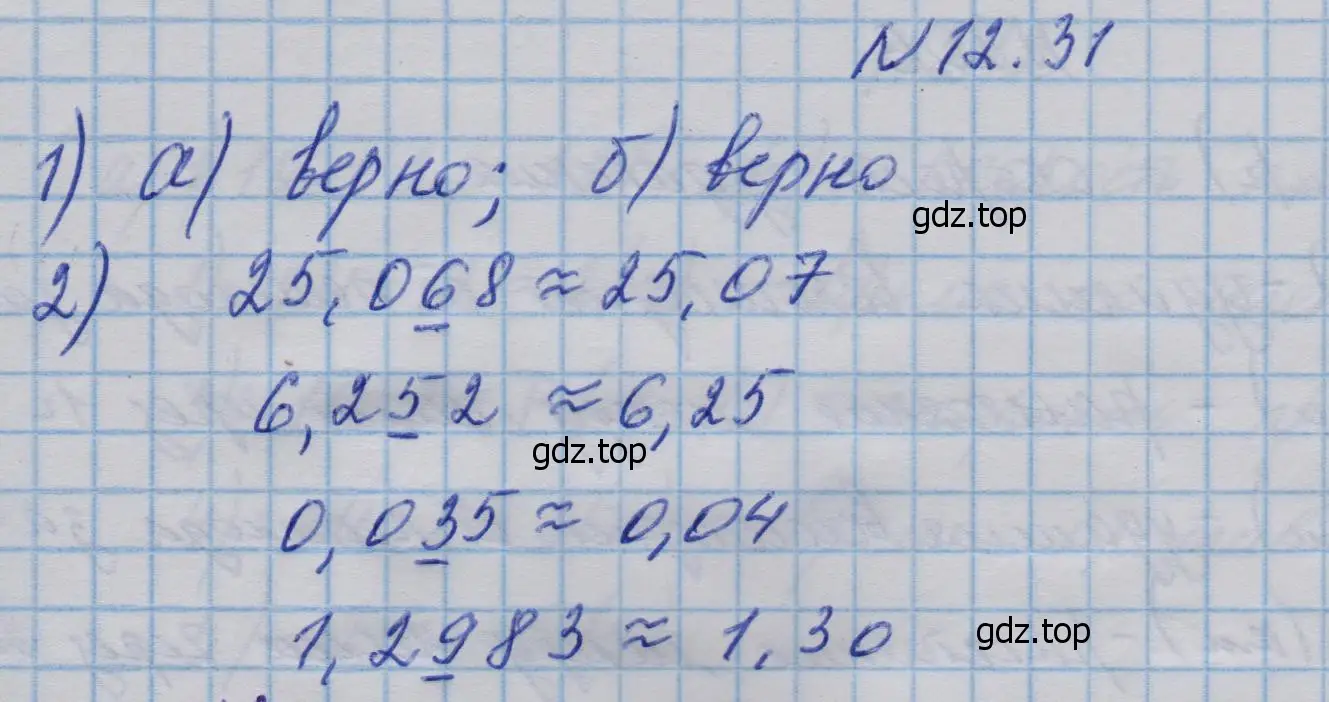 N 12.31
1) а) верно; б) верно
gdz.top
2) 25,068 ≈ 25,07
6,252 ≈ 6,25
gdz.top
0,035 ≈ 0,04
1,2983 ≈ 1,30
gdz.top